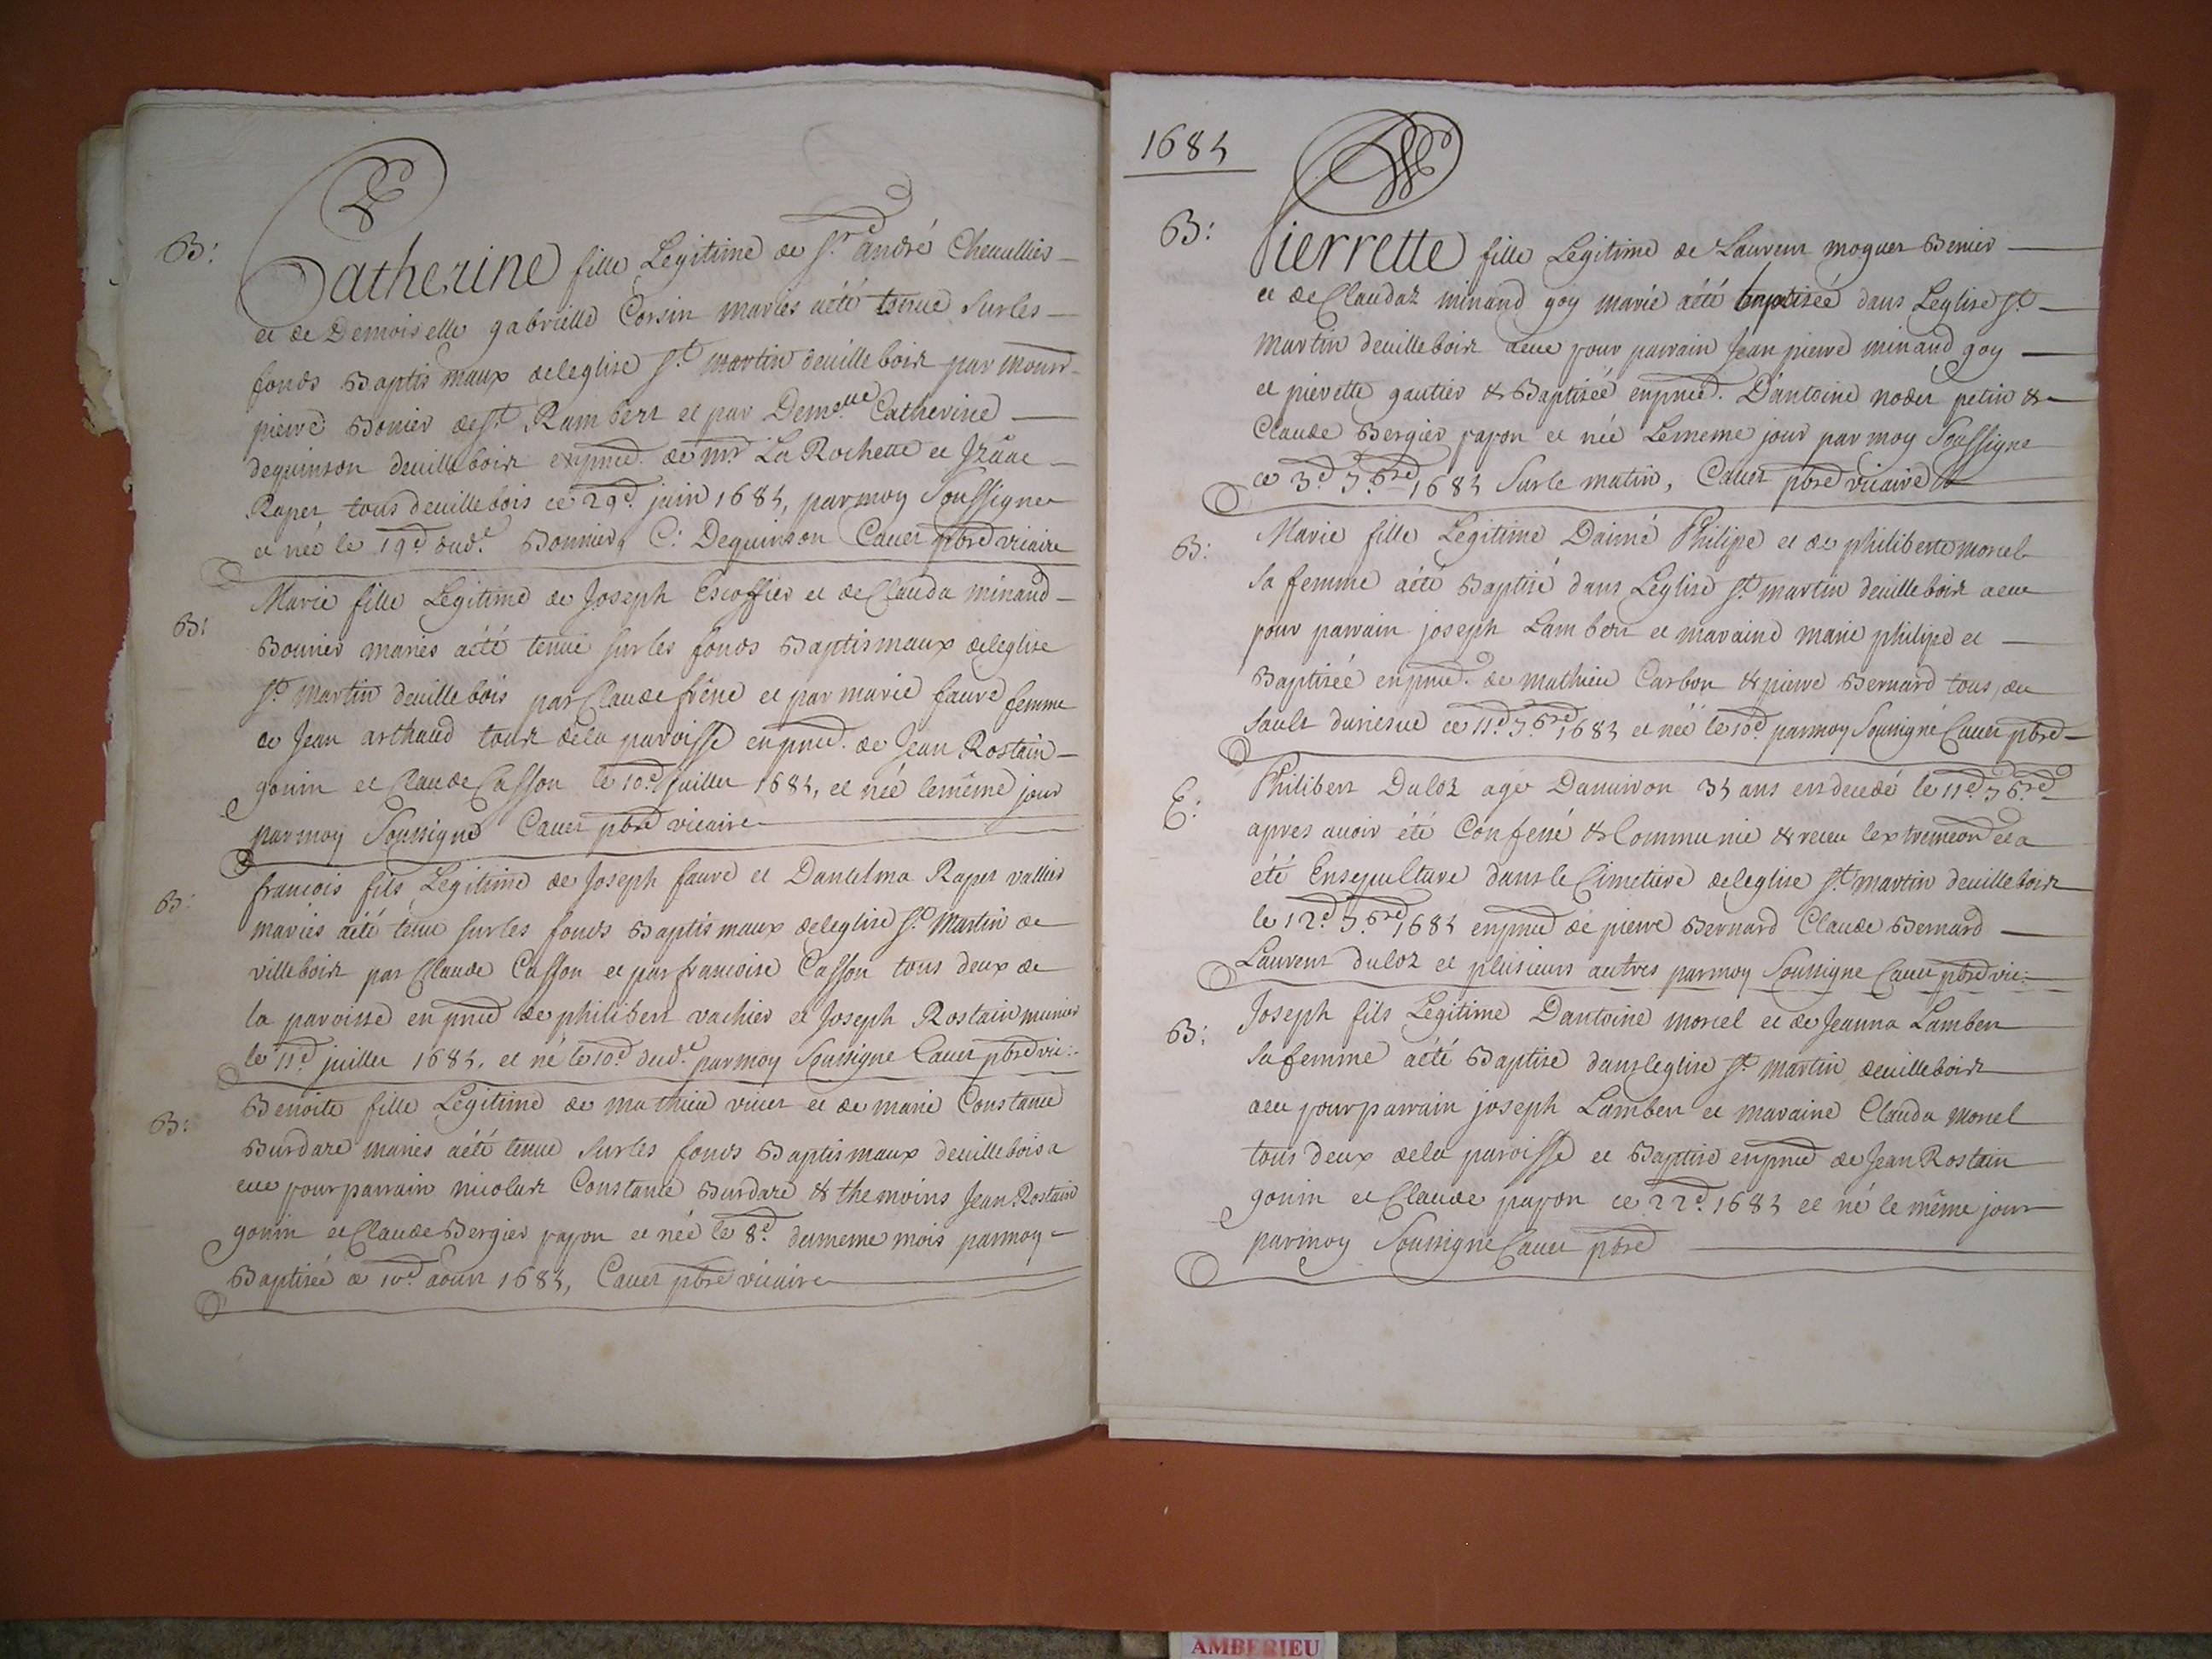 B:
Catherine fille Legitime de Sr. andré Cheuallier
et de Demoiselle gabrielle Corsin mariés aété tenue surles
fonds Baptismaux deleglise St. martin deuillebois par monsr
pierre Bonier de St. Rambert et par Demoelle Catherine
dequinson deuillebois enpnce. de mr La Rochette et
Raper tous deuillebois ce 29e. juin 1684, parmoy Soussigner
et née le 19e dud.e Bonnier, C: Dequinson Cauet pbre vicaire
B:
Marie fille Legitime de Joseph Escoffier et de Clauda minand
Bonnier mariés aété tenue surles fonds Baptismaux deleglise
St. martin deuillebois par Claude frêne et par marie faure femme
de Jean arthaud tous dela paroisse enpnce. de Jean Rostain
gonin et Claude Casson le 10e juillet 1684, et née lemême jour
parmoy Soussigné Cauet pbre vicaire
B:
francois fils Legitime de Joseph faure et Dantelma Raper vallier
mariés aété tenu surles fonds Baptismaux deleglise St. Martin de
villebois par Claude Casson et par francoise Casson tous deux de
la paroisse en pnce de philibert vachier et Joseph Rostain munier
le 11e juillet 1684. et né le 10e dud.e parmoy Soussigne Cauet pbre vic:
B:
Benoite fille Legitime de mathieu viuet et de marie Constance
Burdare mariés aété tenue surles fonds Baptismaux deuillebois a
eue pour parrain nicolas Constance Burdare & themoins Jean Rostain
gonin et Claude Bergier papon et née le 8e. dumeme mois parmoy
Baptisée ce 10e aoust 1684, Cauet pbre vicaire
1684
B:
Pierrette fille Legitime de Laurent moguet Benier
et de Claudaz minand goy marié aété baptisée dans Leglise St.
Martin deuillebois aeue pour parrain Jean pierre minand goy
et pierette gautier & Baptisée enpnce. Dantoine noder petin &
Claude Bergier papon et née Lememe jour par moy Soussigne
ce 3e 7bre 1684 Surle matin, Cauet pbre vicaire
B:
Marie fille Legitime Daimé Philipe et de philiberte morcel
sa femme aété Baptisé dans Leglise St. martin deuillebois aeue
pour parrain joseph Lambert et maraine marie philipe et
Baptisée enpnce. de mathieu Carbon & pierre Bernard tous de
Sault ce 11e. 7bre 1684 et née le 10e parmoy Soussigné Cauet pbre
E:
Philibert Duloz agé Danuiron 34 ans est decedé le 11e 7bre
apres auoir été Confessé & Communié & receu lextremeon et a
été Ensepulture dans le Cimetiere deleglise St. martin deuillebois
le 12e. 7bre 1684 enpnce de pierre Bernard Claude Bernard
Laurent duloz et plusieurs autres parmoy Soussigne Cauet pbre vic:
B:
Joseph fils Legitime Dantoine morcel et de Jeanna Lambert
sa femme aété Baptise dans leglise St. martin deuillebois
aeu pour parrain joseph Lambert et maraine Clauda morcel
tous deux dela paroisse et Baptise enpnce de Jean Rostain
gonin et Claude papon ce 22e. 1684 et né le même jour
parmoy Soussigné Cauet pbre
AMBERIEU